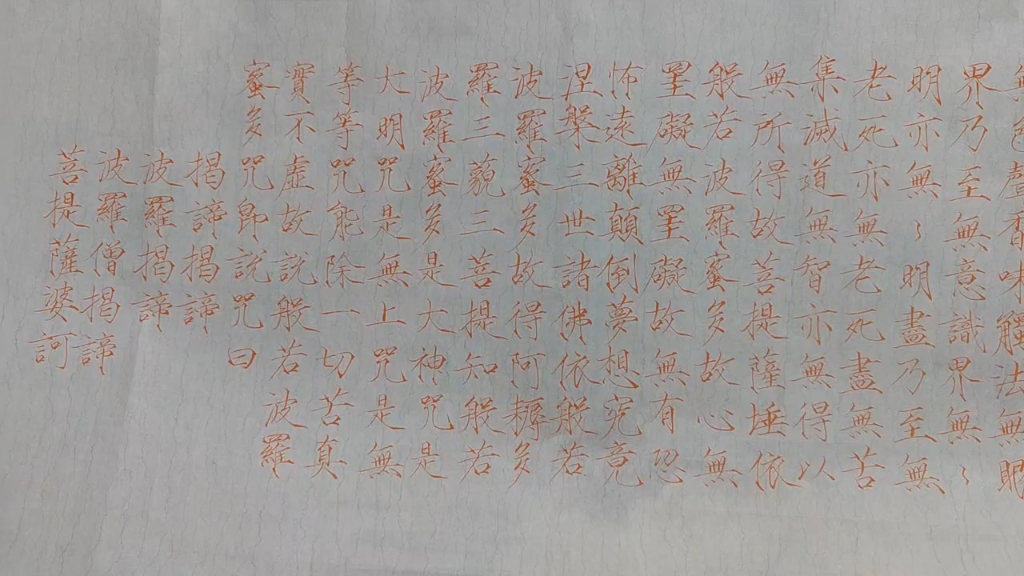 無色聲香味觸法無眼
界乃至無意識界無〻
明亦無〻明盡乃至無
老死亦無老死盡無苦
集滅道無智亦無得以
無所得故菩提薩埵依
般若波羅蜜多故心無
罣礙無罣礙故無有恐
怖遠離顛倒夢想究竟
涅槃三世諸佛依般若
波羅蜜多故得阿耨多
羅三藐三菩提知般若
波羅蜜多是大神咒是
大明咒是無上咒是無
等等咒能除一切苦真
實不虛故說般若波羅
蜜多咒卽說咒曰
揭諦揭諦
波羅揭諦
波羅僧揭諦
菩提薩婆訶